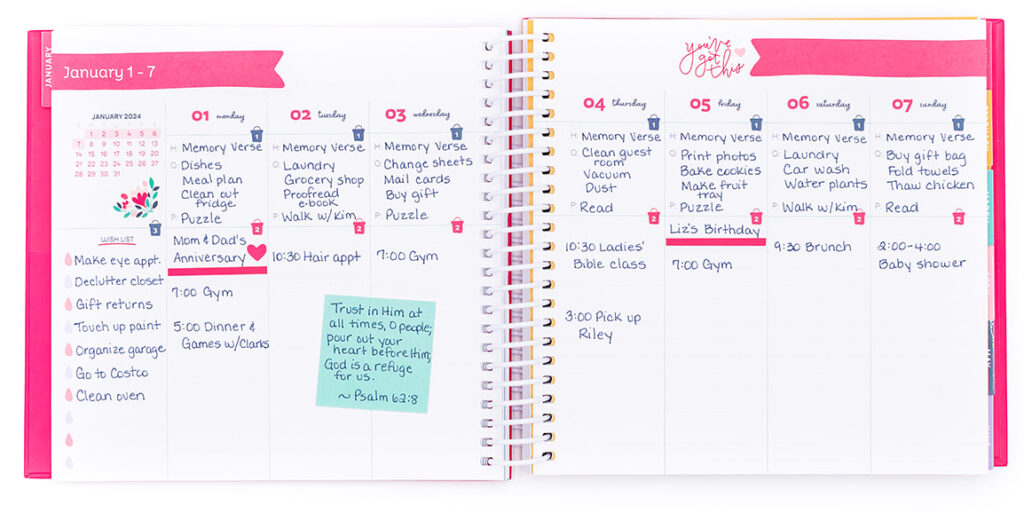 JANUARY
January 1 - 7
JANUARY 2024
1 2 3 4 5 6
7 8 9 10 11 12 13
14 15 16 17 18 19 20
21 22 23 24 25 26 27
28 29 30 31
3
WISH LIST
Make eye appt.
Declutter closet
Gift returns
Touch up paint
Organize garage
Go to Costco
Clean oven
01 monday
1
H Memory Verse
O Dishes
Meal plan
Clean out
fridge
P Puzzle
2
Mom & Dad's
Anniversary
7:00 Gym
5:00 Dinner &
Games w/Clarks
02 tuesday
1
H Memory Verse
O Laundry
Grocery shop
Proofread
e-book
P Walk w/Kim
2
10:30 Hair appt
03 wednesday
1
H Memory Verse
O Change sheets
Mail cards
Buy gift
P Puzzle
2
7:00 Gym
Trust in Him at
all times, O people;
pour out your
heart before Him;
God is a refuge
for us.
~ Psalm 62:8
you've
got
this
04 thursday
1
H Memory Verse
O Clean guest
room
Vacuum
Dust
P Read
2
10:30 Ladies'
Bible class
3:00 Pick up
Riley
05 friday
1
H Memory Verse
O Print photos
Bake cookies
Make fruit
tray
P Puzzle
2
Liz's Birthday
7:00 Gym
06 saturday
1
H Memory Verse
O Laundry
Car wash
Water plants
P Walk w/Kim
2
9:30 Brunch
07 sunday
1
H Memory Verse
O Buy gift bag
Fold towels
Thaw chicken
P Read
2
2:00-4:00
Baby shower